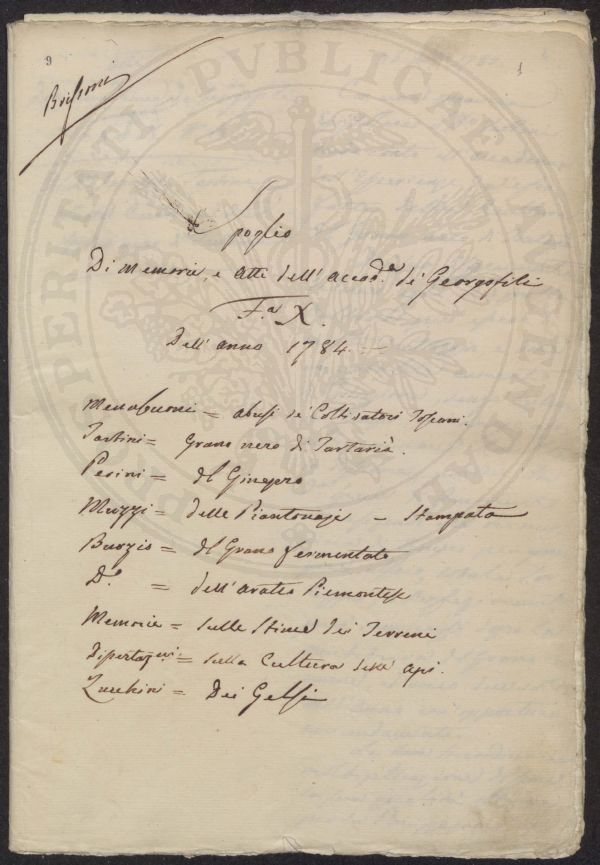 9
1
Brissoni
Spoglio
Di memorie, e Atti dell' accad.a de' Georgofili
F.a X.
Dell' anno 1784.
Menabuoni = abusi de' Coltivatori Toscani.
Tartini = Grano nero di Tartaria.
Pesini = del Ginepro
Muzzi = delle Piantonaje = Stampata
Burzio = del Grano fermentato
D.o = dell' aratro Piemontese
Memorie = sulle Stime dei Terreni
Dissertaz.ni = sulla Cultura delle api.
Zucchini = Dei Gelsi
PROSPERITATI PUBLICAE AUGENDAE